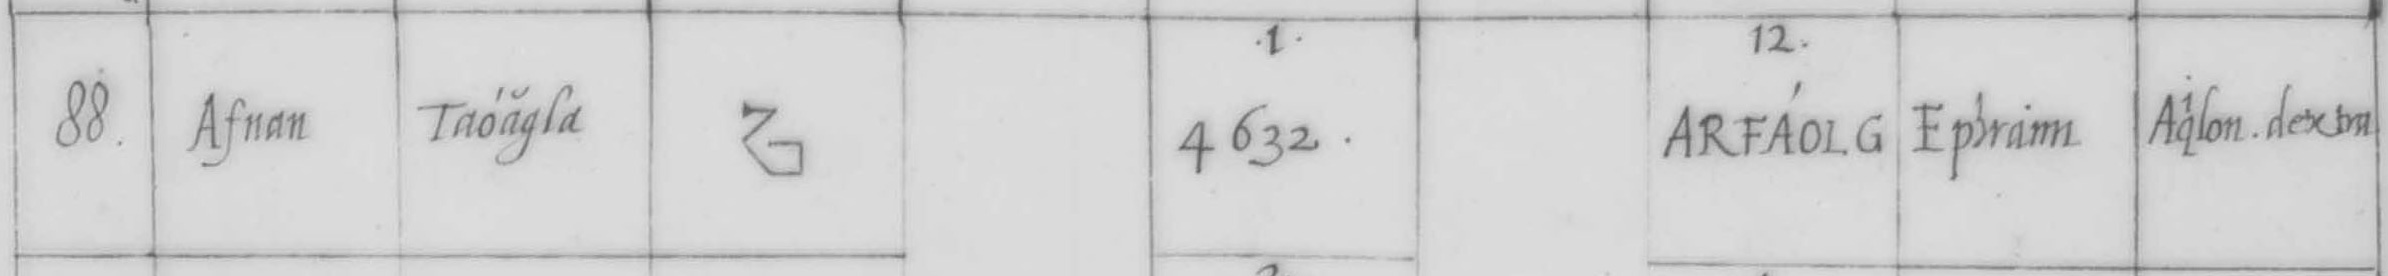 .1. 12.
88. Afnan Taóăgla 4632. ARFÁOLG Ephraim Aqlon. dextra